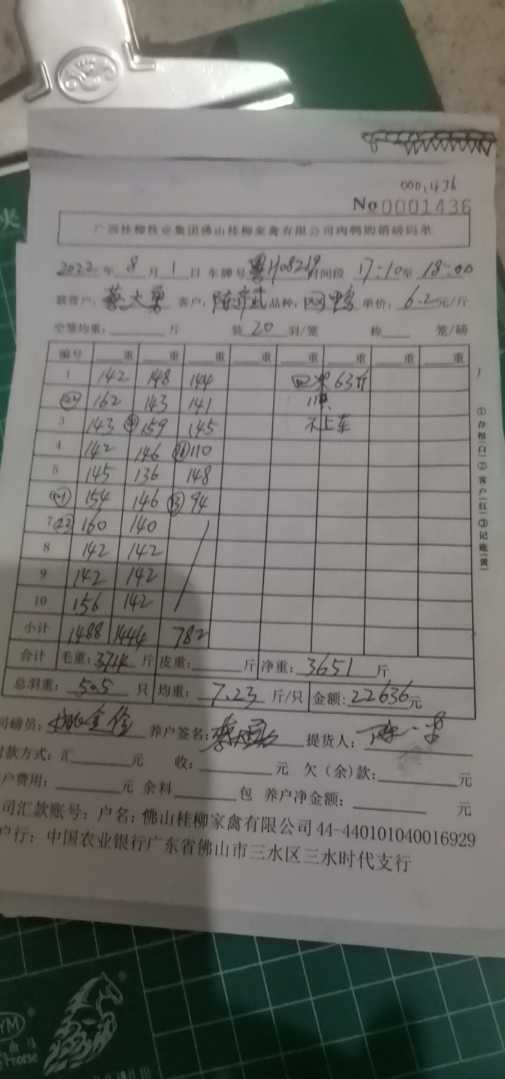 000,436
No 0001436
广西桂柳牧业集团佛山桂柳家禽有限公司肉鸭购销磅码单
2022年 8月 1日 车牌号 粤H08219 时间段 17:10至 18:00
客户: 品种: 单价: 6.2元/斤
空笼均重: 斤 装 20 羽/笼 称 笼/磅
编号 重 重 重 重 重 重 重
1 142 148 144 63斤
162 143 141
3 143 159 145 不上车
4 142 146 110
5 145 136 148
154 146 94
7 160 140
8 142 142
9 142 142
10 156 142
小计 1488 1444 782
合计 毛重: 3714 斤 皮重: 斤 净重: 3651 斤
总羽重: 505 只 均重: 7.23 斤/只 金额: 22636元
司磅员: 养户签名: 提货人:
付款方式: 汇 元 收: 元 欠(余)款: 元
户费用: 元 余料 包 养户净金额: 元
司汇款账号: 户名: 佛山桂柳家禽有限公司 44-440101040016929
户行: 中国农业银行广东省佛山市三水区三水时代支行
①存根(白)②客户(红)③记账(黄)